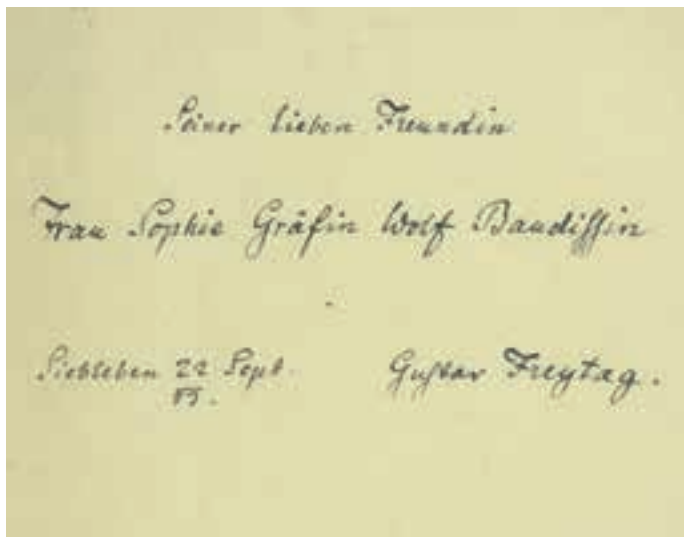 Seiner lieben Freundin
Frau Sophie Gräfin Wolf Baudissin
Siebleben 22 Sept.
Gustav Freytag.